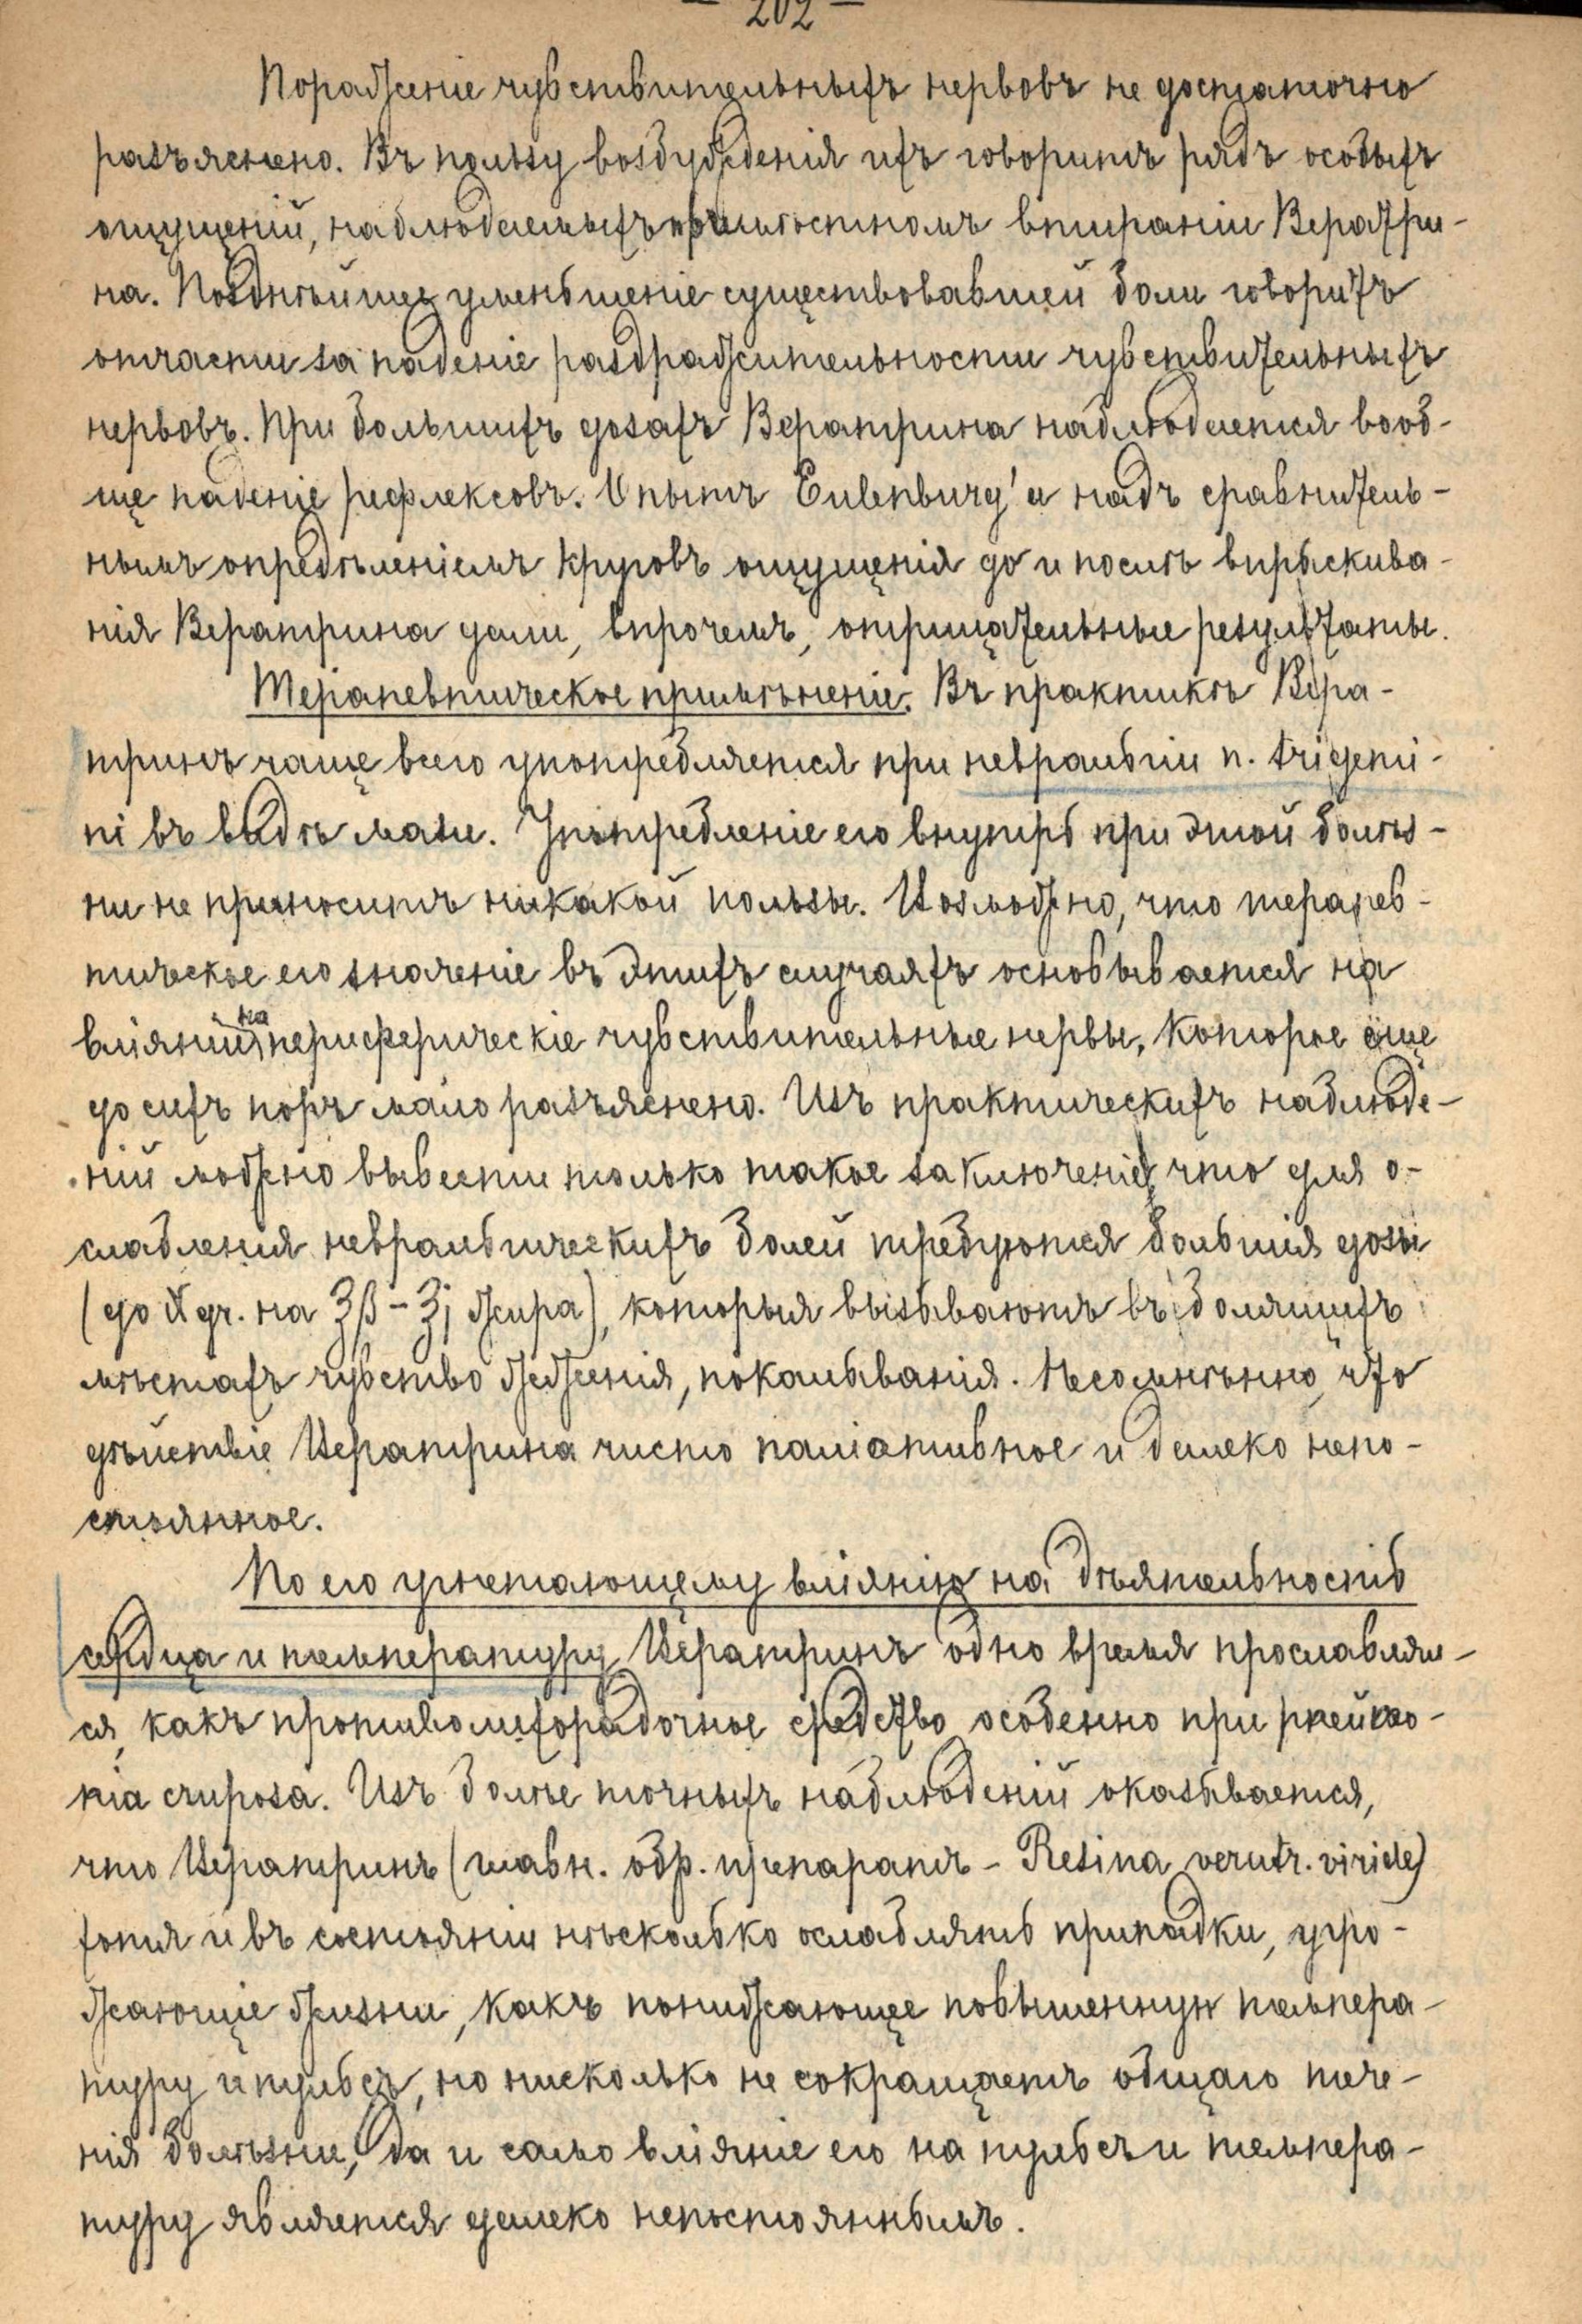 — 202 —
Пораженіе чувствительныхъ нервовъ не достаточно
разъяснено. Въ пользу возбужденія ихъ говоритъ рядъ особыхъ
ощущеній, наблюдаемыхъ при мѣстномъ втираніи Вератри-
на. Позднѣйшее уменьшеніе существовавшей боли говоритъ
отчасти за паденіе раздражительности чувствительныхъ
нервовъ. При большихъ дозахъ Вератрина наблюдается вооб-
ще паденіе рефлексовъ. Опытъ Eulenburg'а надъ сравнитель-
нымъ опредѣленіемъ круговъ ощущенія до и послѣ впрыскива-
нія Вератрина дали, впрочемъ, отрицательные результаты.
Терапевтическое примѣненіе. Въ практикѣ Вера-
тринъ чаще всего употребляется при невральгіи n. trigemi-
ni въ видѣ мази. Употребленіе его внутрь при этой болѣз-
ни не приноситъ никакой пользы. Возможно, что терапев-
тическое его значеніе въ этихъ случаяхъ основывается на
вліяніи на периферическіе чувствительные нервы, которое еще
до сихъ поръ мало разъяснено. Изъ практическихъ наблюде-
ній можно вывести только такое заключеніе, что для о-
слабленія невральгическихъ болей требуются большія дозы
(до х gr. на ʒβ – ʒj жира), которыя вызываютъ въ болящихъ
мѣстахъ чувство жженія, покалыванія. Несомнѣнно, что
дѣйствіе Вератрина чисто паліативное и далеко непо-
стоянное.
По его угнетающему вліянію на дѣятельность
сердца и температуру Вератринъ одно время прославлял-
ся, какъ противолихорадочное средство особенно при pneumo-
nia cruposa. Изъ болѣе точныхъ наблюденій оказывается,
что Вератринъ (главн. обр. препаратъ – Resina veratr. viride)
хотя и въ состояніи нѣсколько ослаблять припадки, угро-
жающіе жизни, какъ понижающее повышенную темпера-
туру и пульсъ, но нисколько не сокращаетъ общаго тече-
нія болѣзни, да и само вліяніе его на пульсъ и темпера-
туру является далеко непостояннымъ.